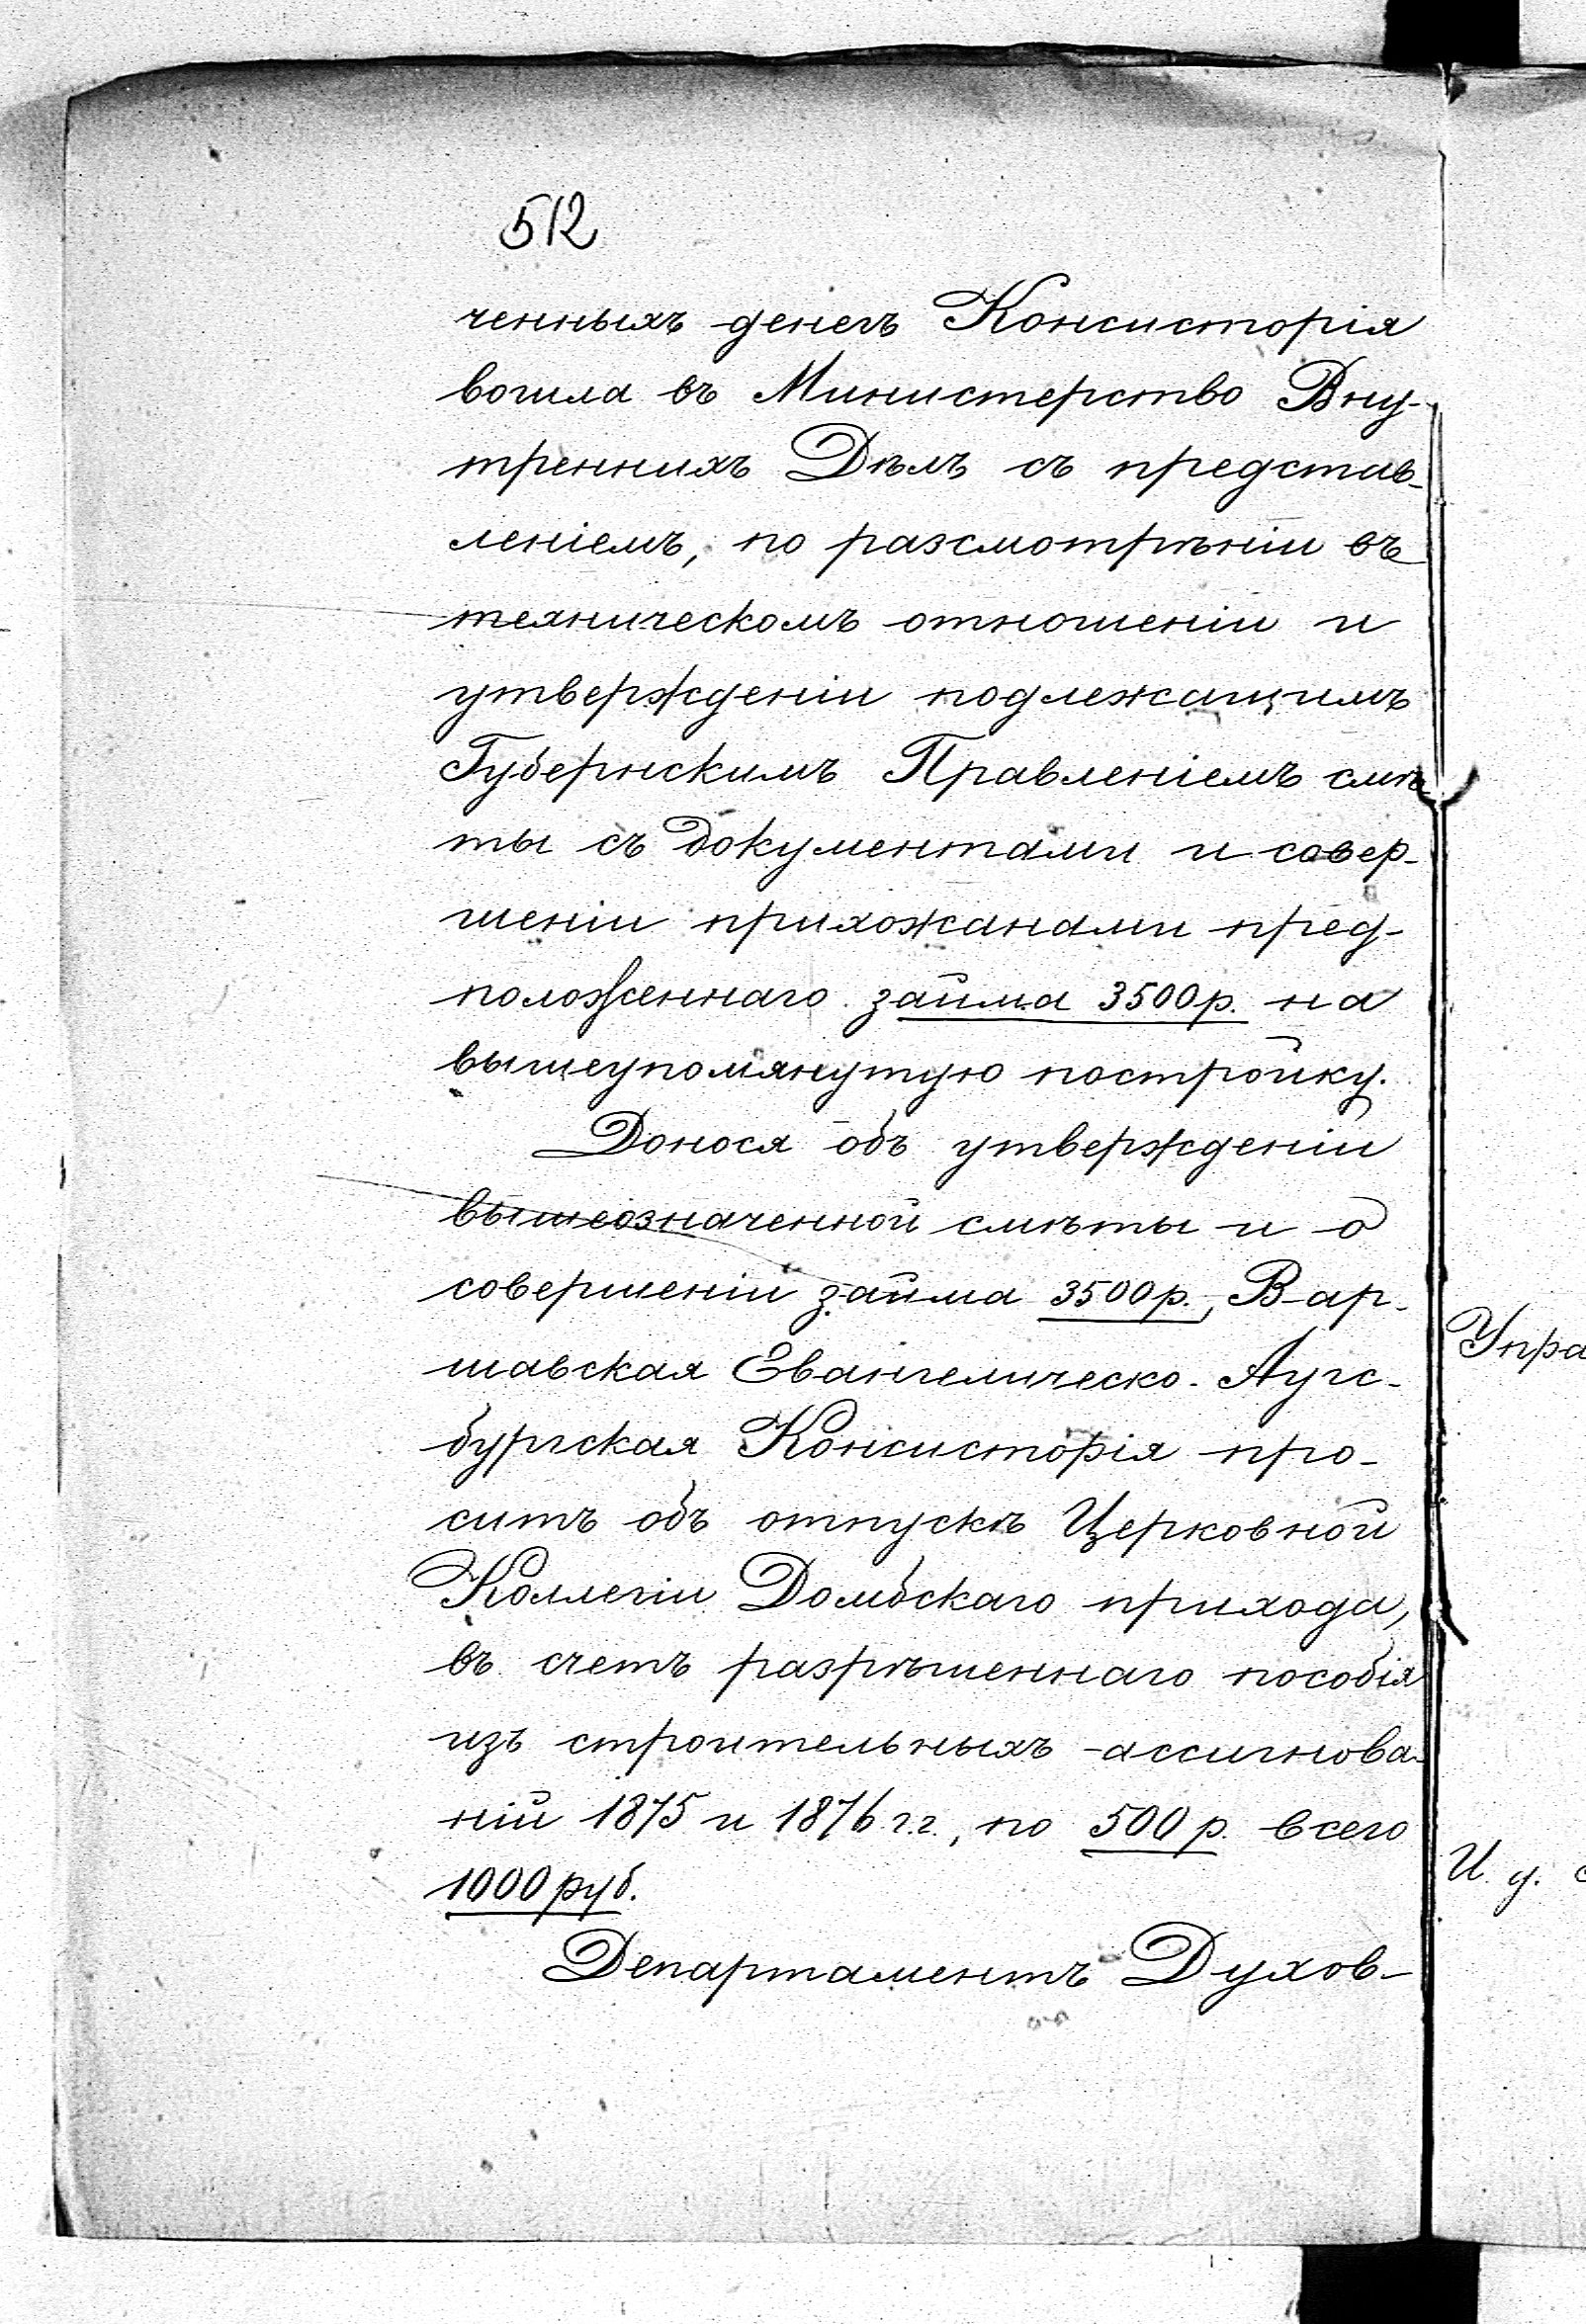 512
ченныхъ денегъ Консисторія
вошла въ Министерство Вну-
треннихъ Дѣлъ съ представ-
леніемъ, по разсмотрѣніи въ
техническомъ отношеніи и
утвержденіи подлежащимъ
Губернскимъ Правленіемъ смѣ
ты съ документами и совер-
шеніи прихожанами пред-
положеннаго займа 3500 р. на
вышеупомянутую постройку.
Донося объ утвержденіи
вышеозначенной смѣты и о
совершеніи займа 3500 р., Вар-
шавская Евангелическо-Аугс-
бургская Консисторія про-
ситъ объ отпускѣ Церковной
Коллегіи Домбскаго прихода,
въ счетъ разрѣшеннаго пособія
изъ строительныхъ ассигнова-
ній 1875 и 1876 г.г., по 500 р. всего
1000 руб.
Департаментъ Духов-
Упра
И. у.